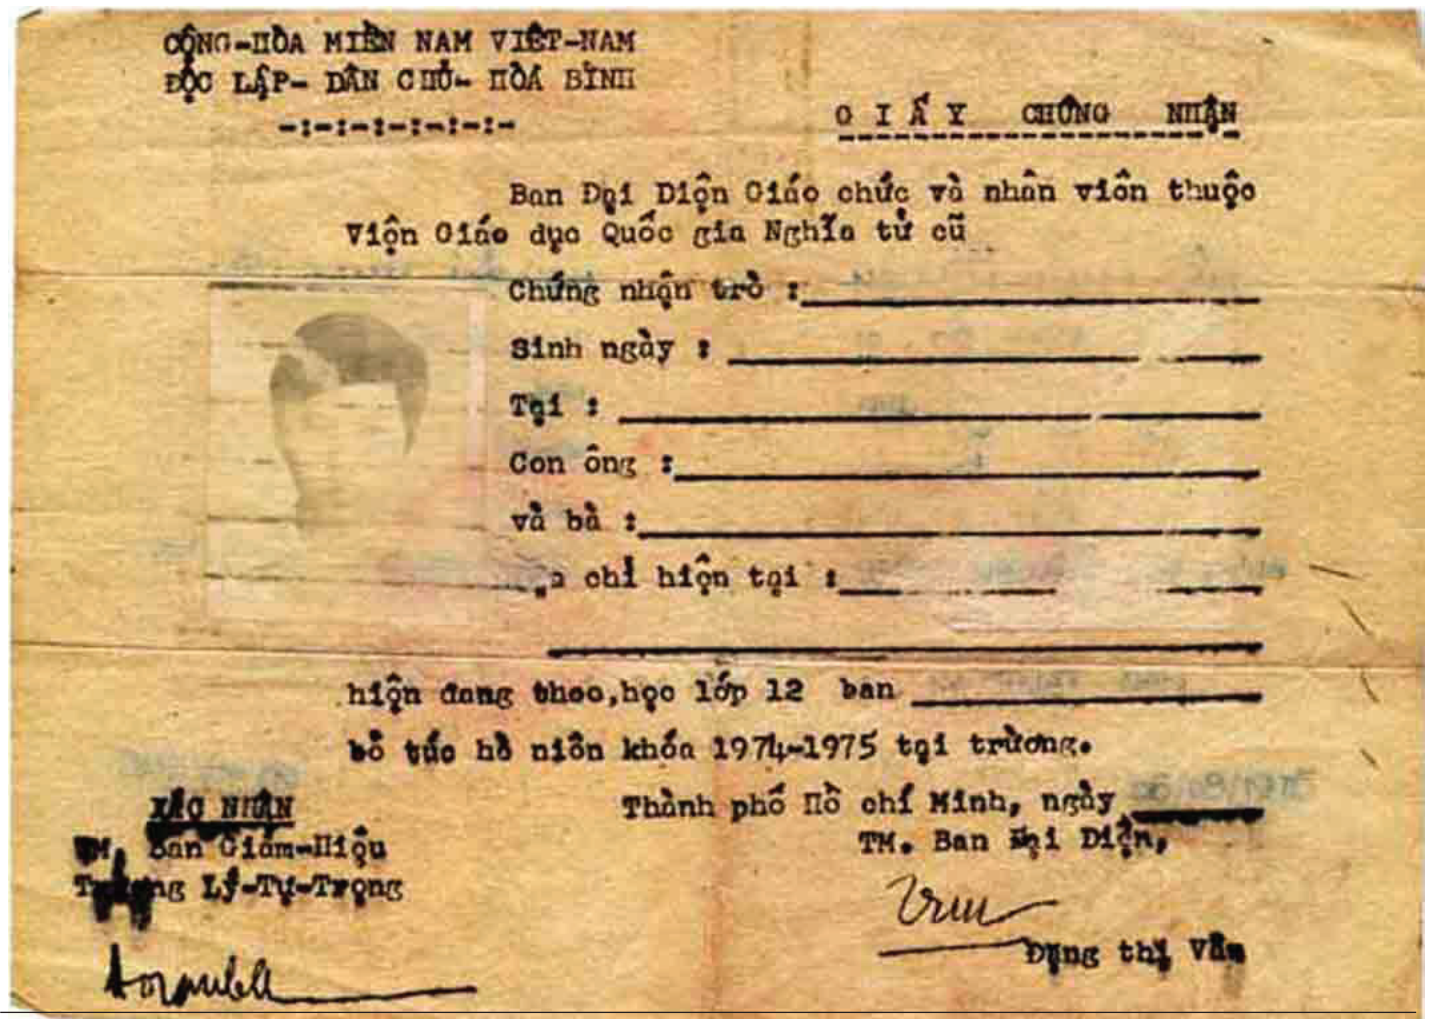 CỘNG-HÒA MIỀN NAM VIỆT-NAM
ĐỘC LẬP- DÂN CHỦ- HÒA BÌNH
-:-:-:-:-:-:-
G I Ấ Y CHỨNG NHẬN
Ban Đại Diện Giáo chức và nhân viên thuộc
Viện Giáo dục Quốc gia Nghĩa tử cũ
Chứng nhận trò :
Sinh ngày :
Tại :
Con ông :
và bà :
chỉ hiện tại :
hiện đang theo,học lớp 12 ban
bổ túc hè niên khóa 1974-1975 tại trường.
Thành phố Hồ chí Minh, ngày
XÁC NHẬN
TM. Ban Giám-Hiệu
Trường Lý-Tự-Trọng
TM. Ban Đại Diện,
Đặng thị Vân